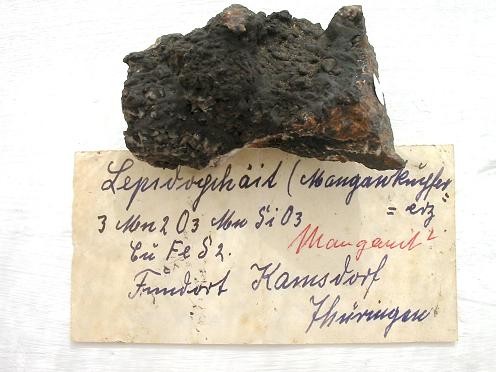 Lepidophäit (Mangankupfer
= erz
3 Mn2 O3 Mn Si O3
Manganit?
Cu Fe S2.
Fundort Kamsdorf
Thüringen